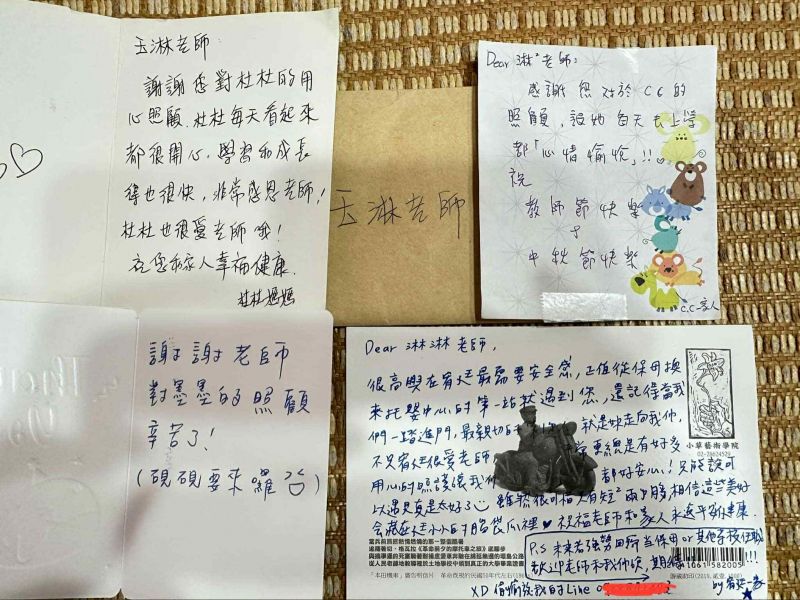 玉淋老師：
謝謝您對杜杜的用
心照顧，杜杜每天看起來
都很開心，學習和成長
得也很快，非常感恩老師！
杜杜也很愛老師哦！
祝您和家人幸福健康
杜杜媽媽
玉淋老師
Dear 淋²老師：
感謝您對於CC的
照顧，讓她每天去上學
都「心情愉悅」!!
祝
教師節快樂
中秋節快樂
C.C一家人
謝謝老師
對墨墨的照顧
辛苦了！
(硯硯要來囉
Dear 淋淋老師，
很高興在 最需要安全感，正值從保母換
來托嬰中心的第一站就遇到您，還記得當我
們一踏進門，最親切的 就是她走向我們，
不只 很愛老師 更總是有好多
用心的照護讓我們 都好安心！只能說可
以遇見真是太好了 雖然很可惜 相信這些美好
會藏在 小小的腦袋瓜裡♥祝福老師和家人永遠平安健康
P.S 未來若強勢回歸當保母or其他學校任職
歡迎老師和我們 !!!
XD 偷偷放我的Line
by 一家
小草藝術學院
02-26624529
當兵前熊熊熱情燃燒的那一整個酷著
從人民老師被轉種植民土地學校中領到真正的大學畢業證書
1061582005